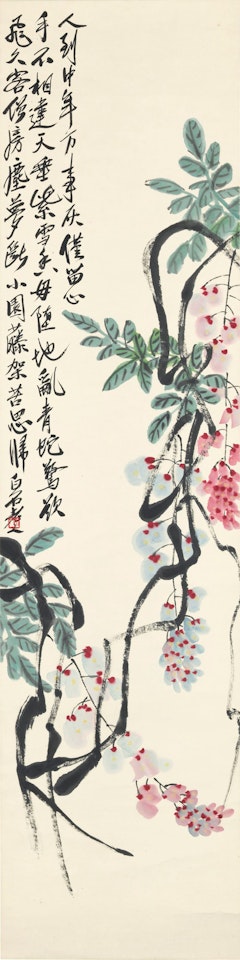 人到中年万事灰僅留心
手不相違天垂紫雪毋隨地亂青蛇驚欲
飛久客僧房塵夢斷小園藤架苦思歸白石